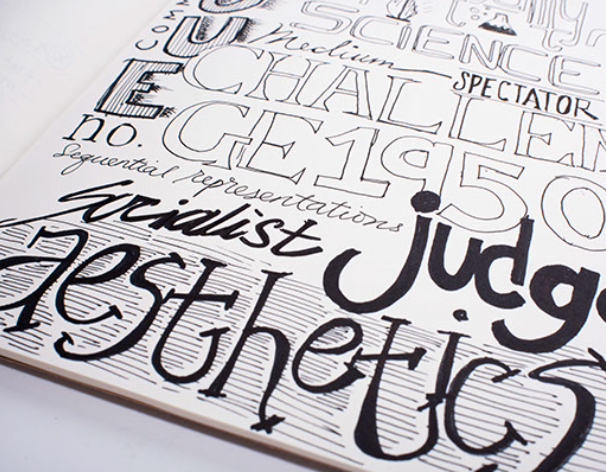 SCIENCE
Medium
SPECTATOR
CHALLEN
GE1950
no.
Sequential representations
Socialist
judge
aesthetics